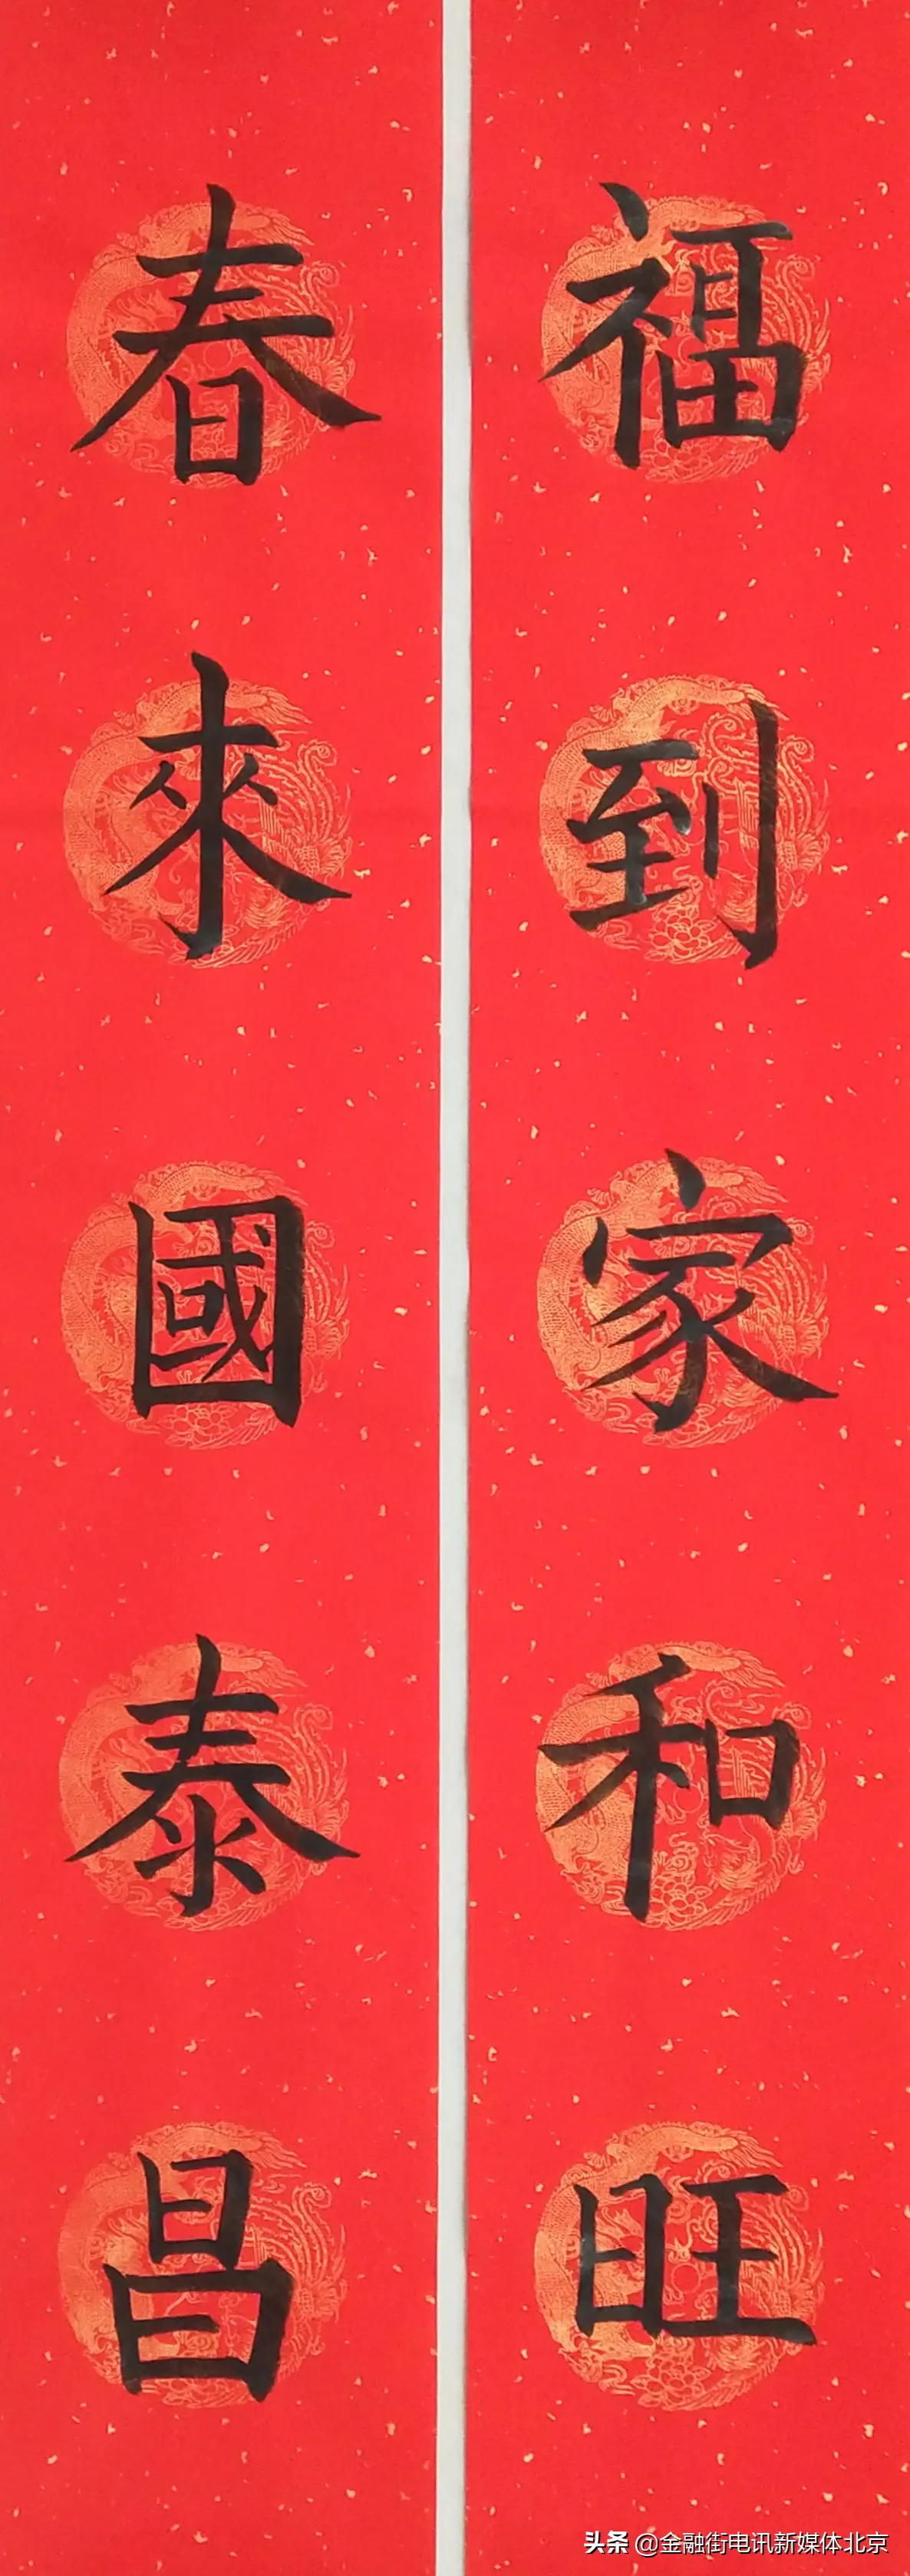 福到家和旺
春來國泰昌
头条 @金融街电讯新媒体北京